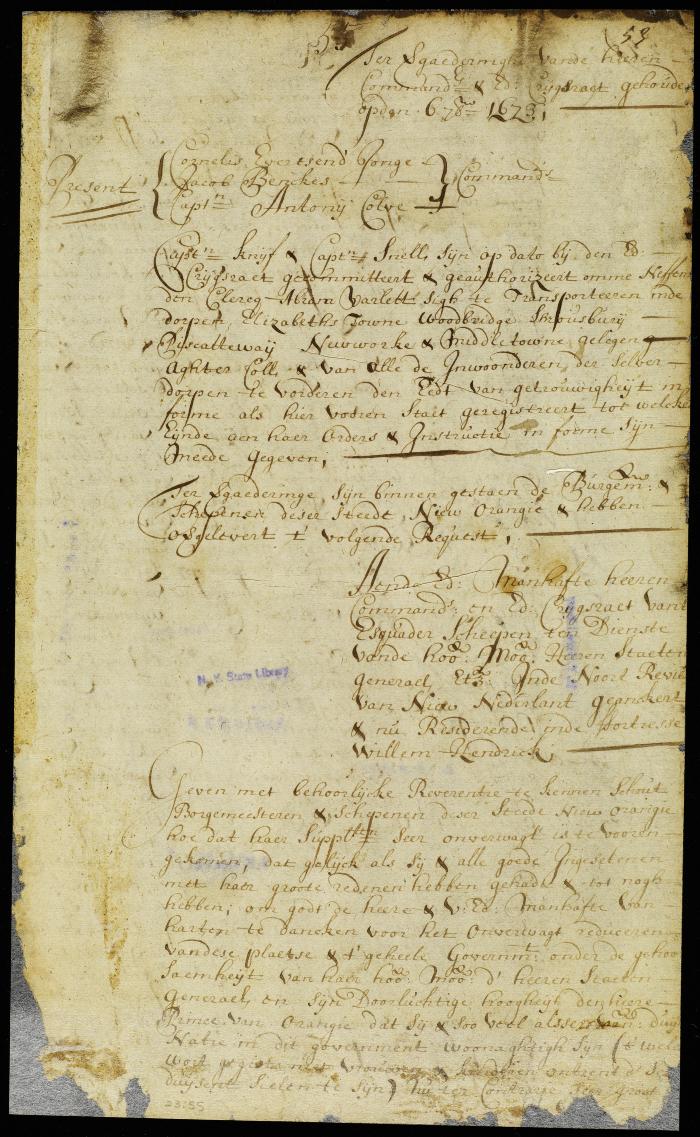 59
Ter Vgaederingh vande heeren
Commandrs & Ed: Crijgsraet gehouden
opden 6 7br 1673,
Present
Cornelis Evertsen d' Jonge
Jacob Benckes
Captn Antonij Colve
Commandrs
Captn Knijf & Captn Snell, sijn op dato bij den Ed:
Crijgsraet gecommitteert & geauthorizeert omme Neffens
den Clercq Abram Varlett sigh te Transporteeren inde
dorpen, Elizabeths Towne Woodbridge Shrousbury
Piscattewaij Newworke & Middletowne gelegen
Aghter Coll, & van alle de Inwoonderen der selver
dorpen te vorderen den Eedt van getrouwigheijt in
forme als hier vooren Staet geregistreert tot welcke
Eijnde aen haer Orders & Instructie in forme sijn
Meede gegeven,
Ter Vgaederinge, sijn binnen gestaen de Burgemrn &
Schepenen deser Steede Niew Orangie & hebben
overgelevert t' volgende Request,
Aende Ed: Manhafte heeren
Commandrs en Ed: Crijgsraet vant
Esquader Scheepen ten Dienste
vande hoo: Moo: Heeren Staeten
generael, Etz: Inde Noort Revier
van Niew Nederlant geanckert
& nu Resideerende inde fortresse
Willem Hendrick,
N. Y. State Library
Geven met behoorlijcke Reverentie te kennen Schout
Borgemeesteren & Schepenen deser Steede Niew Orangie
hoe dat haer Supplten seer onverwagt is te vooren
gekomen, dat gelijck als sij & alle goede Ingesetenen
met haer groote redenen hebben gehadt & tot nogh
hebben, om godt de heere & U: Ed: Manhafte van
harten te dancken voor het onverwagt reduceren
vandese plaetse & t' geheele Governmt: onder de gehoor
saemheijt van haer hoo: Moo: d' heeren Staeten
Generael, en Sijn Doorluchtige hoogheijt den heere
Prince van Orangie dat sij & soo veel alsser van: duij
Natie in dit government woonaghtigh sijn (t wel
wort geestimeert vrouwen & kinderen ontrent d' Ses
duijsent Zielen te sijn) nu ter Contrarie seer groot
23:55